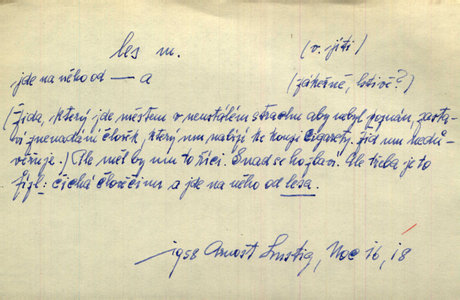 les m. (v. jíti)
jde na něho od — a (zákeřně, lstivě?)
(Žida, který jde městem v neustálém strachu aby nebyl poznán, zasta-
ví znenadání člověk, který mu nabízí ke koupi cigarety. Žid mu nedů-
věřuje:) Ale měl by mu to říci. Snad se ho zbaví. Ale třeba je to
fízl: čichá člověčinu a jde na něho od lesa.
1958 Arnošt Lustig, Noc 16, 18